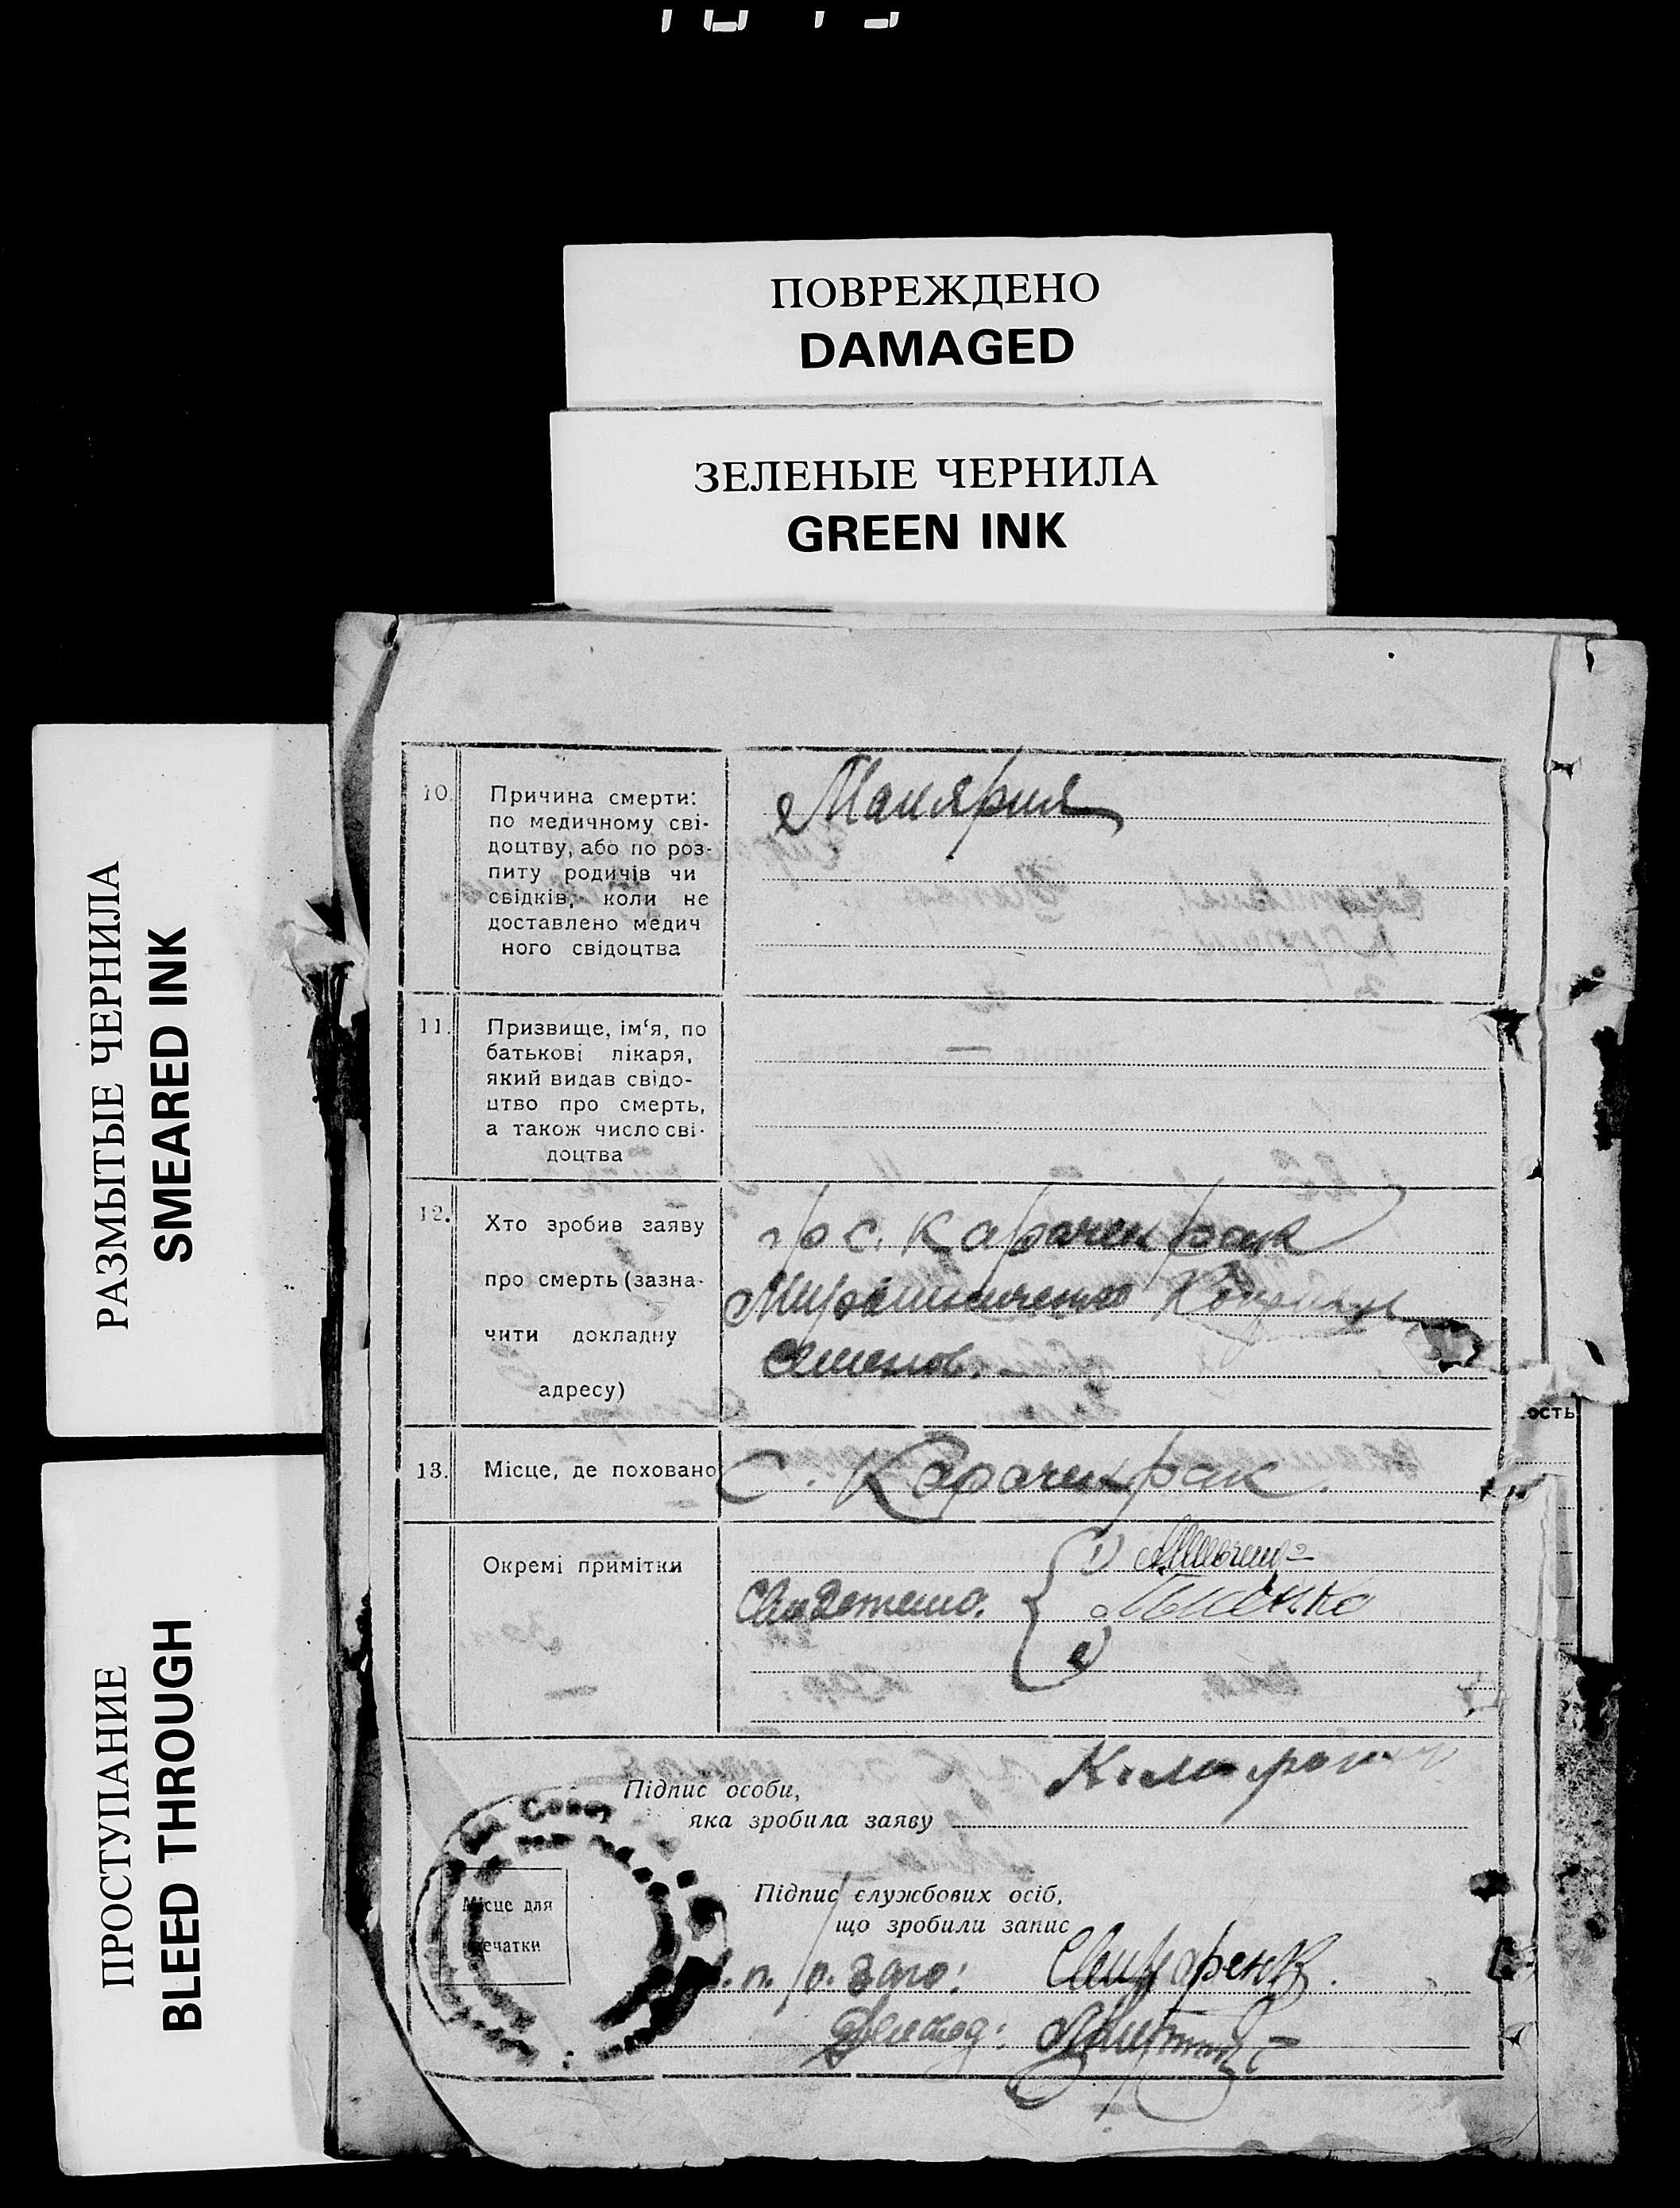 ПОВРЕЖДЕНО
DAMAGED
ЗЕЛЕНЫЕ ЧЕРНИЛА
GREEN INK
РАЗМЫТЫЕ ЧЕРНИЛА
SMEARED INK
ПРОСТУПАНИЕ
BLEED THROUGH
10. Причина смерти:
по медичному сві-
доцтву, або по роз-
питу родичів чи
свідків, коли не
доставлено медич
ного свідоцтва
Малярия
11. Призвище, ім‘я, по
батькові лікаря,
який видав свідо-
цтво про смерть,
а також число сві-
доцтва
—
12. Хто зробив заяву
про смерть (зазна-
чити докладну
адресу)
гр с. Карачекрак
Мирошниченко
Семенов.
13. Місце, де поховано
с. Карачекрак.
Окремі примітки
1)
2)
Підпис особи,
яка зробила заяву
Місце для
печатки
Підпис службових осіб,
що зробили запис
ость